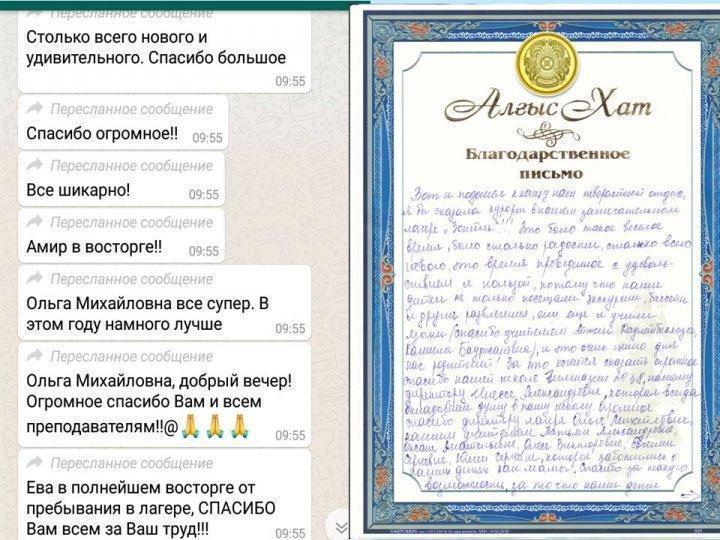 Пересланное сообщение
Столько всего нового и
удивительного. Спасибо большое
09:55
Пересланное сообщение
Спасибо огромное!! 09:55
Пересланное сообщение
Все шикарно! 09:55
Пересланное сообщение
Амир в восторге!! 09:55
Пересланное сообщение
Ольга Михайловна все супер. В
этом году намного лучше 09:55
Пересланное сообщение
Ольга Михайловна, добрый вечер!
Огромное спасибо Вам и всем
преподавателям!!@🙏🙏🙏 09:55
Пересланное сообщение
Ева в полнейшем восторге от
пребывания в лагере, СПАСИБО
Вам всем за Ваш труд!!! 09:55
Алғыс Хат
Благодарственное
письмо
Вот и подошел к концу наш невероятный отдых,
я бы сказала курорт в нашем замечательном
лагере !!! Это было такое веселое
время, было столько радости, столько всего
нового, это время проведенное с удоволь-
ствием и пользой, потому что наши
детки не только посещали экскурсии, бассейн
и другие развлечения, они еще и учили
языки (спасибо учителям
), и это очень ценно для
нас родителей! За это хочется сказать огромное
спасибо нашей школе гимназии №38, нашему
директору Александровне, которая всегда
вкладывает душу в нашу школу. Огромное
спасибо директору лагеря Ольге Михайловне,
нашим учителям Татьяне Александровне,
Оксане Анатольевне, Олесе Викторовне, Евгении
Сергеевне, Юлии Сергеевне, которые заботились о
наших детях как мамы! Спасибо за такую
возможность, за то что наши дети